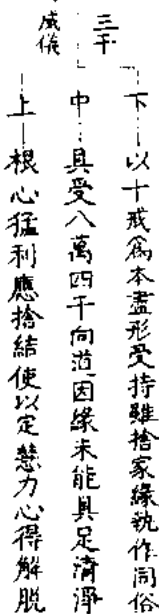 三千
威儀
下－以十戒為本盡形受持雖捨家緣執作同俗
中－具受八萬四千向道因緣未能具足清淨
上－根心猛利應捨結使以定慧力心得解脫